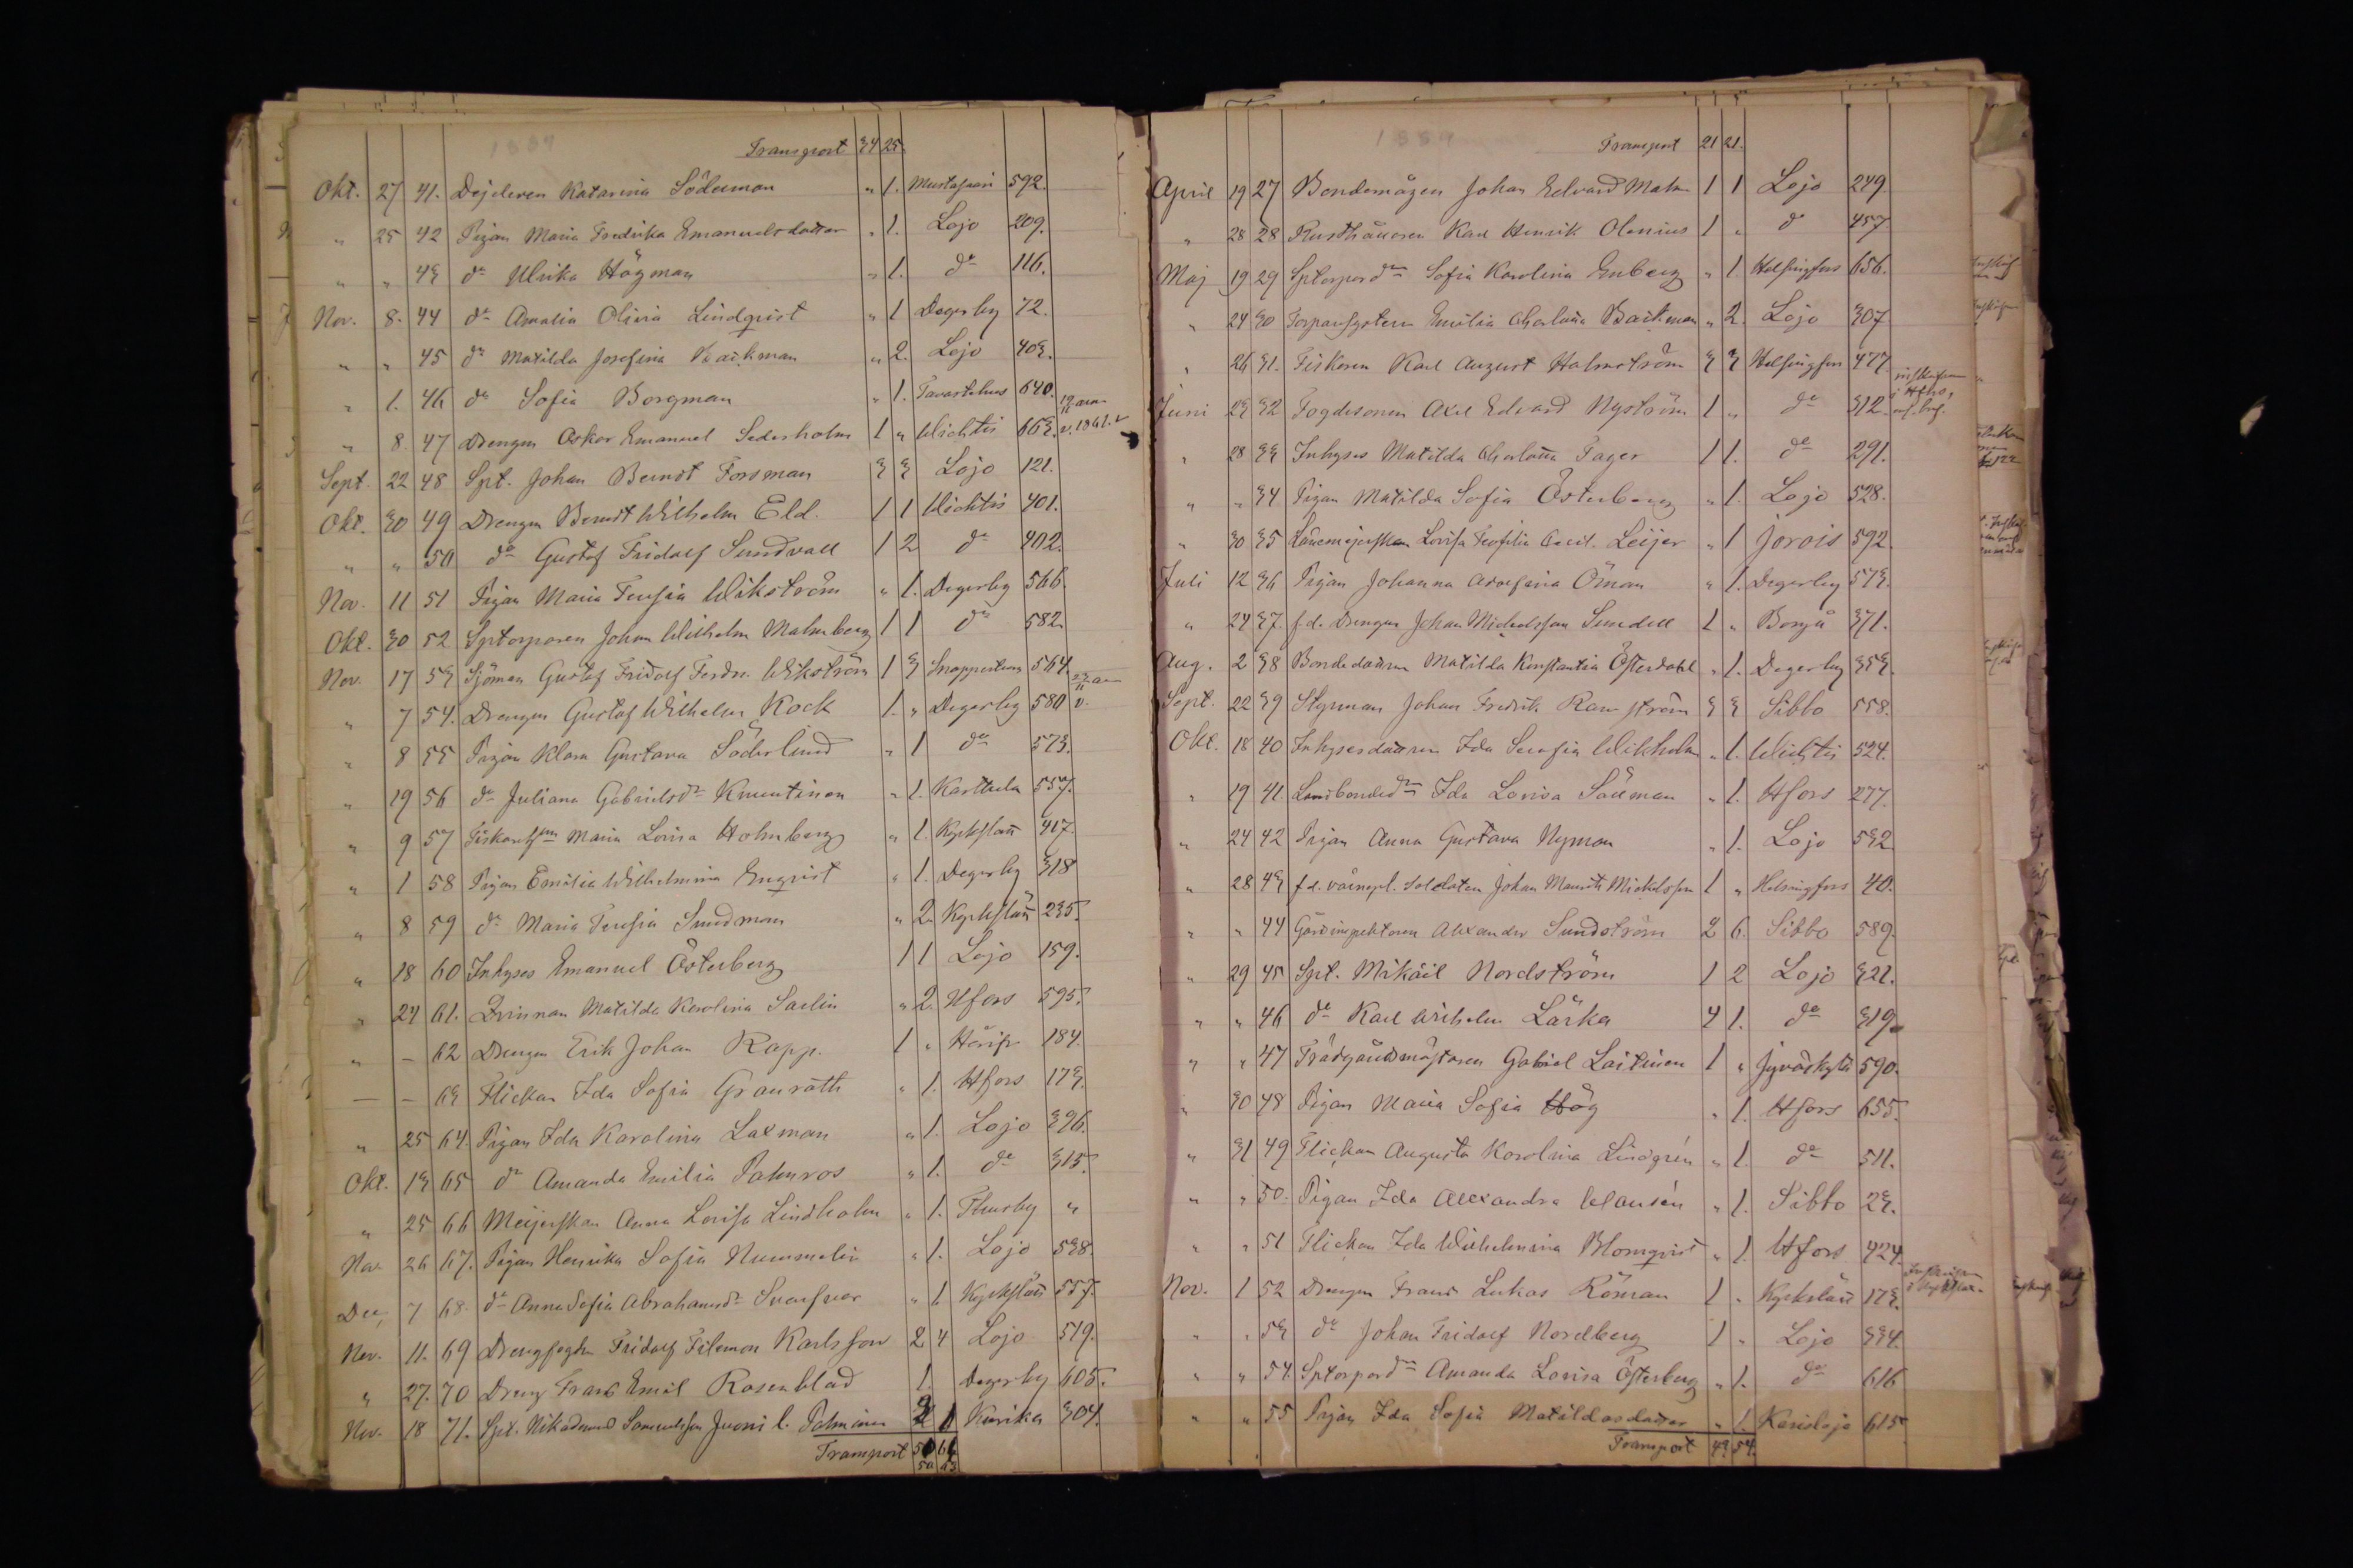 1889
Transport 34 25.
Okt. 27 41. Dejderen Katarina Söderman " 1. Mustasaari 592.
" 25 42 Pigan Maria Fredrika Emanuelsdotter " 1. Lojo 209.
" " 43 do Ulrika Högman " 1. do 116.
Nov. 8. 44 do Amalia Olivia Lindqvist " 1 Degerby 72.
" " 45 do Matilda Josefina Backman " 2. Lojo 403.
" 1. 46 do Sofia Borgman " 1. Tavastehus 640.
" 8. 47 Drengen Oskar Emanuel Sederholm 1 " Wichtis 663.
Sept. 22 48 Spt. Johan Berndt Forsman 3 3 Lojo 121.
Okt. 30 49 Drengen Berndt Wilhelm Eld. 1 1 Wichtis 401.
" " 50 do Gustaf Fridolf Sundvall 1 2 do 402.
Nov. 11 51 Pigan Maria Serafia Wikström " 1. Degerby 566.
Okt. 30 52 Sptorparen Johan Wilhelm Malmberg 1 1 do 582.
Nov. 17 53 Sjöman Gustaf Fridolf Ferdn. Wikström 1 3 Snappertuna 564.
" 7 54. Drengen Gustaf Wilhelm Kock 1. " Degerby 580
" 8 55 Pigan Klara Gustava Söderlund " 1 do 573.
" 19 56 do Juliana Gabrielsdr Knuutinen " 1. Karttula 557.
" 9 57 Maria Lovisa Holmberg " 1. Kyrkslätt 417.
" 1 58 Pigan Emilia Wilhelmina Enqvist " 1. Degerby 318
" 8 59 do Maria Serafia Sundman " 2. Kyrkslätt 235.
" 18 60 Inhyses Emanuel Österberg 1 1 Lojo 159.
" 24 61. Qvinnan Matilda Karolina Saelin " 2. Hfors 595.
" – 62 Drengen Erik Johan Rapp. 1 " 184.
— – 63 Flickan Ida Sofia Granroth " 1. Hfors 173.
" 25 64. Pigan Ida Karolina Laxman " 1. Lojo 396.
Okt. 13 65 do Amanda Emilia Palmros " 1. do 315.
" 25 66 Meijerskan Anna Lovisa Lindholm " 1. Thusby "
Nov. 26 67. Pigan Henrika Sofia Nummelin " 1. Lojo 538.
Dec, 7 68. do Anna Sofia Abrahamsdr " 1. Kyrkslätt 557.
Nov. 11. 69 Fridolf Filemon Karlsson 2 4 Lojo 519.
" 27. 70 Dreng Frans Emil Rosenblad 1. Degerby 605.
Nov. 18 71. Spt. Nikodemus Samuelsson Juoni l. Palminen 1 Kurika 304.
Transport
1889
Transport 21 21.
April 19 27 Bondemågen Johan Edvard Malm 1 1 Lojo 249
" 28 28 Rusthållaren Karl Henrik Olenius 1 " do 457
Maj 19 29 Sptorpardn Sofia Karolina Enberg " 1. Helsingfors 656.
" 24 30 Emilia Charlotta Backman " 2. Lojo 307
" 26 31. Fiskaren Karl August Holmström 3 3 Helsingfors 477.
Juni 23 32 Fogdesonen Axel Edvard Nyström 1 " do 312.
" 28 33 Inhyses Matilda Charlotta Fager 1 1. do 291.
" " 34 Pigan Matilda Sofia Österberg " 1. Lojo 528.
" 30 35 Lovisa Teofilia Leijer " 1 Jorois 592.
Juli 12 36 Pigan Johanna Adolfina Öman " 1. Degerby 573.
" 24 37. f.d. Drengen Johan Michelsson Sundell 1 " Borgå 371.
Aug. 2 38 Bondedottren Matilda Konstantia Österdahl " 1. Degerby 353.
Sept. 22 39 Styrman Johan Fredrik Ramström 3 3 Sibbo 558.
Okt. 18 40 Inhysesdottren Ida Serafia Wikholm " 1. Wichtis 524.
" 19 41. Landbondedn Ida Lovisa Sällman " 1. Hfors 277.
" 24 42 Pigan Anna Gustava Nyman " 1. Lojo 532
" 28 43 f.d. värnepl. Soldaten Johan Mauritz Mickelsson 1 " Helsingfors 40.
" " 44 Gårdsinspektoren Alexander Sundström 2 6. Sibbo 589.
" 29 45 Spt. Mikael Nordström 1 2 Lojo 321.
" " 46 do Karl Wilhelm Lärka 4 1. do 319.
" " 47 Trädgårdsmästaren Gabriel Laitinen 1 " Jyväskylä 590.
" 30 48 Pigan Maria Sofia Hög " 1. Hfors 655.
" 31 49 Flickan Augusta Karolina Lindgrén " 1. do 511.
" " 50. Pigan Ida Alexandra Clausén " 1. Sibbo 23.
" " 51 Flickan Ida Wilhelmina Blomqvist " 1. Hfors 424.
Nov. 1 52 Drengen Frans Lukas Röman 1 " Kyrkslätt 173.
" " 53 do Johan Fridolf Nordberg 1 " Lojo 334.
" " 54. Sptorpardn Amanda Lovisa Österberg " 1. do 616
" " 55 Pigan Ida Sofia Matildasdotter " 1. Karislojo 615
Transport 43 54.